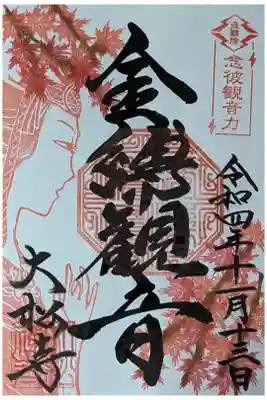 念彼観音力
令和四年十一月十三日
金縛観音
大松寺